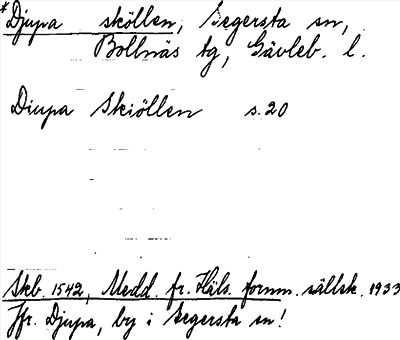 *Djupa sköllen, Segersta sn,
Bollnäs tg, Gävleb. l.
Diupa Skiöllen s. 20
Skb. 1542, Medd. fr. Häls. fornm. sällsk. 1933
Jfr. Djupa, by i Segersta sn!